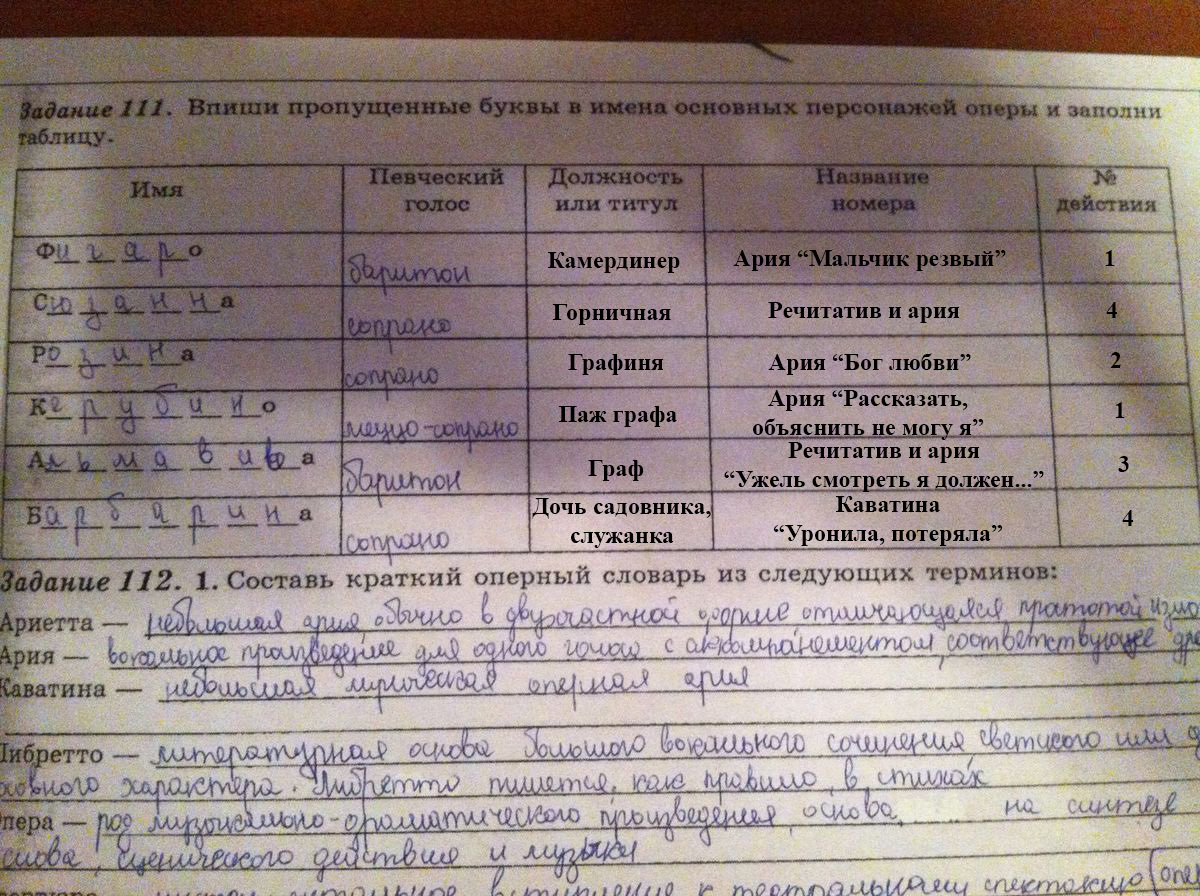 Задание 111. Впиши пропущенные буквы в имена основных персонажей оперы и заполни
таблицу.
Имя Певческий голос Должность или титул Название номера № действия
Фигаро баритон Камердинер Ария “Мальчик резвый” 1
Сюзанна сопрано Горничная Речитатив и ария 4
Розина сопрано Графиня Ария “Бог любви” 2
Керубино меццо-сопрано Паж графа Ария “Рассказать, объяснить не могу я” 1
Альмавива баритон Граф Речитатив и ария “Ужель смотреть я должен...” 3
Барбарина сопрано Дочь садовника, служанка Каватина “Уронила, потеряла” 4
Задание 112. 1. Составь краткий оперный словарь из следующих терминов:
Ариетта — небольшая ария, обычно в двухчастной форме отличающаяся простотой изло
Ария — вокальное произведение для одного голоса с аккомпанементом, соответствующее
Каватина — небольшая лирическая оперная ария
Либретто — литературная основа большого вокального сочинения светского или д
ховного характера. Либретто пишется, как правило, в стихах
пера — род музыкально-драматического произведения, основа на синтезе
слова, сценического действия и музыки
вступление к театральному спектаклю (опе